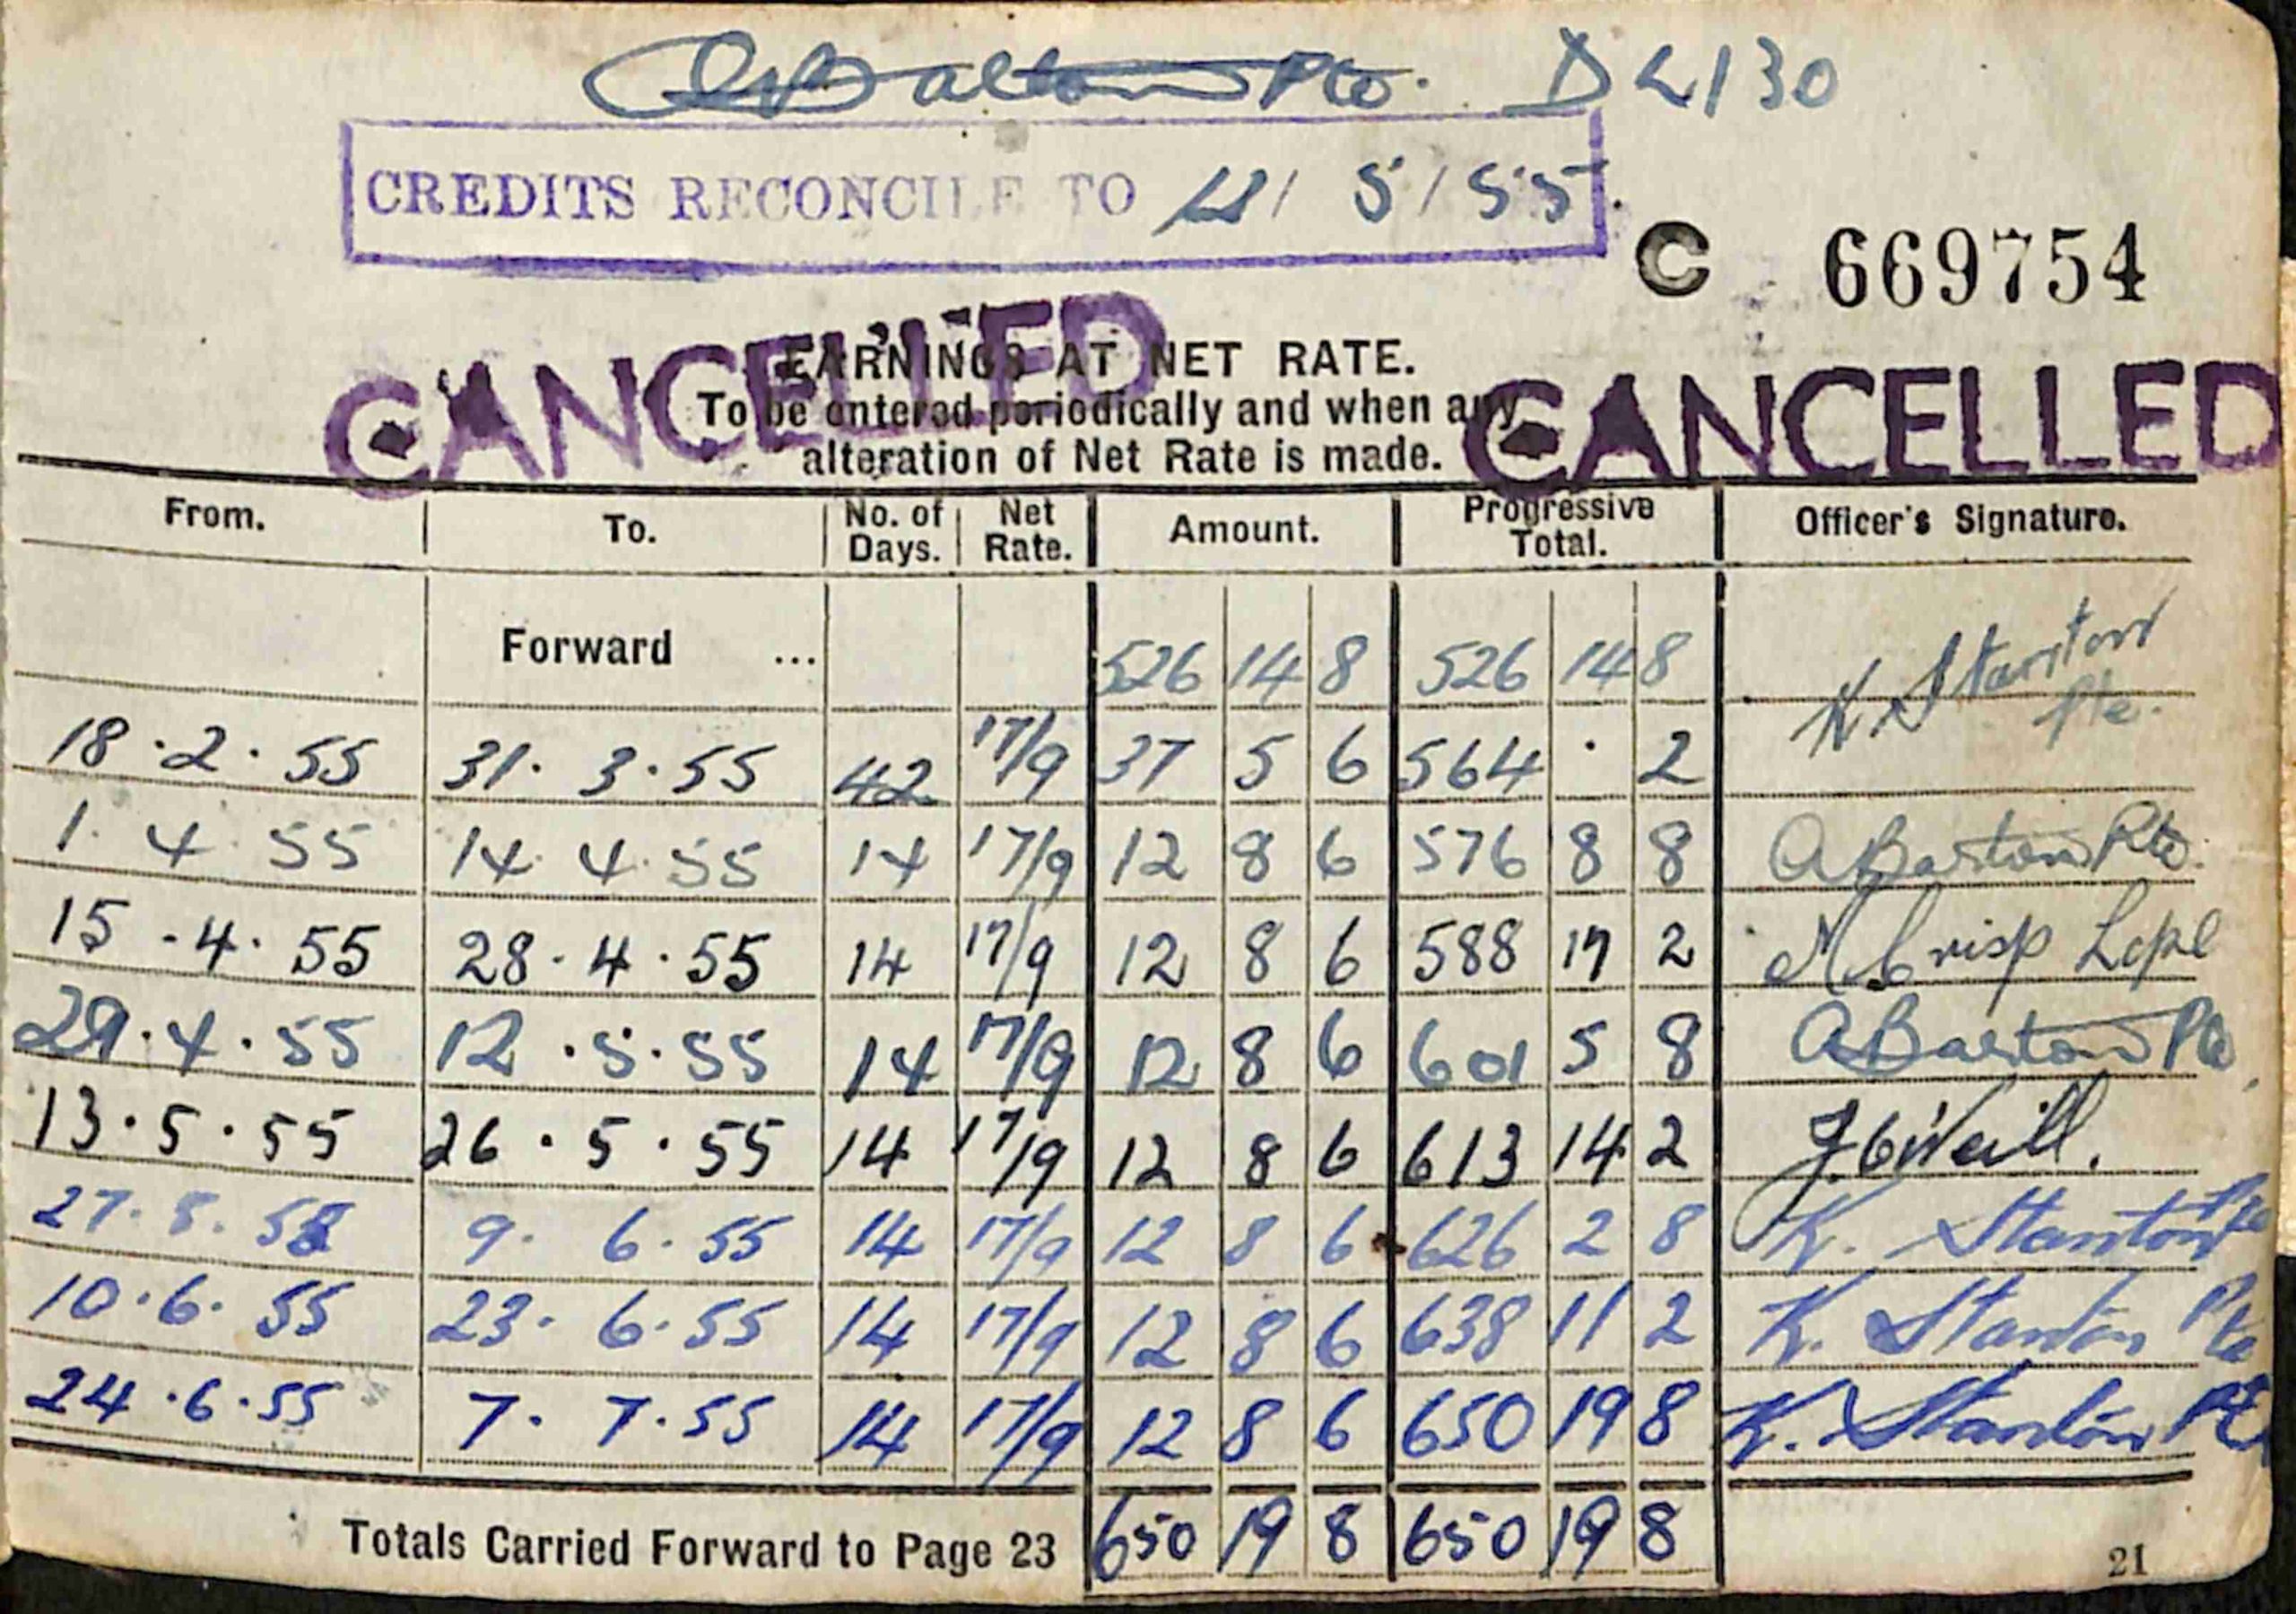 Pte. D2130
CREDITS RECONCILE TO / 5 / 55.
C 669754
CANCELLED CANCELLED
EARNINGS AT NET RATE.
To be entered periodically and when any
alteration of Net Rate is made.
From. To. No. of Days. Net Rate. Amount. Progressive Total. Officer's Signature.
Forward ... 526 14 8 526 14 8 K Stanton Pte.
18·2·55 31·3·55 42 17/9 37 5 6 564 · 2
1·4·55 14·4·55 14 17/9 12 8 6 576 8 8 A Barton Pte.
15·4·55 28·4·55 14 17/9 12 8 6 588 17 2 M Crisp Lcpl
29·4·55 12·5·55 14 17/9 12 8 6 601 5 8 A Barton Pte
13·5·55 26·5·55 14 17/9 12 8 6 613 14 2 J O'Neill.
27·5·55 9·6·55 14 17/9 12 8 6 626 2 8 K. Stanton Pte
10·6·55 23·6·55 14 17/9 12 8 6 638 11 2 K. Stanton Pte
24·6·55 7·7·55 14 17/9 12 8 6 650 19 8 K. Stanton Pte
Totals Carried Forward to Page 23 650 19 8 650 19 8
21